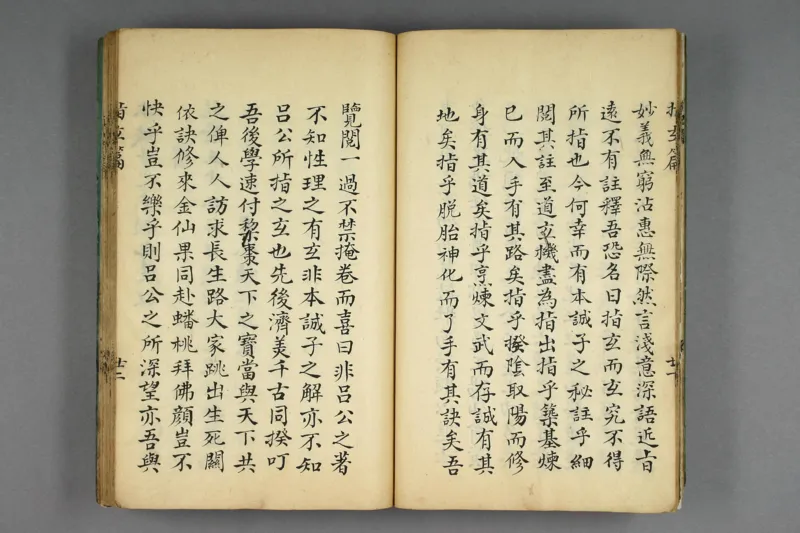 指玄篇
妙義無窮沾惠無際然言淺意深語近旨
遠不有註釋吾恐名曰指玄而玄究不得
所指也今何幸而有本誠子之秘註乎細
閱其註至道玄機盡為指出指乎築基煉
已而入手有其路矣指乎揆陰取陽而修
身有其道矣指乎烹煉文武而存誠有其
地矣指乎脫胎神化而了手有其訣矣吾
覽閱一過不禁掩卷而喜曰非呂公之著
不知性理之有玄非本誠子之解亦不知
呂公所指之玄也先後濟美千古同揆叮
吾後學速付棗天下之寶當與天下共
之俾人人訪求長生路大家跳出生死關
依訣修來金仙果同赴蟠桃拜佛顏豈不
快乎豈不樂乎則呂公之所深望亦吾與
指玄篇
廿二